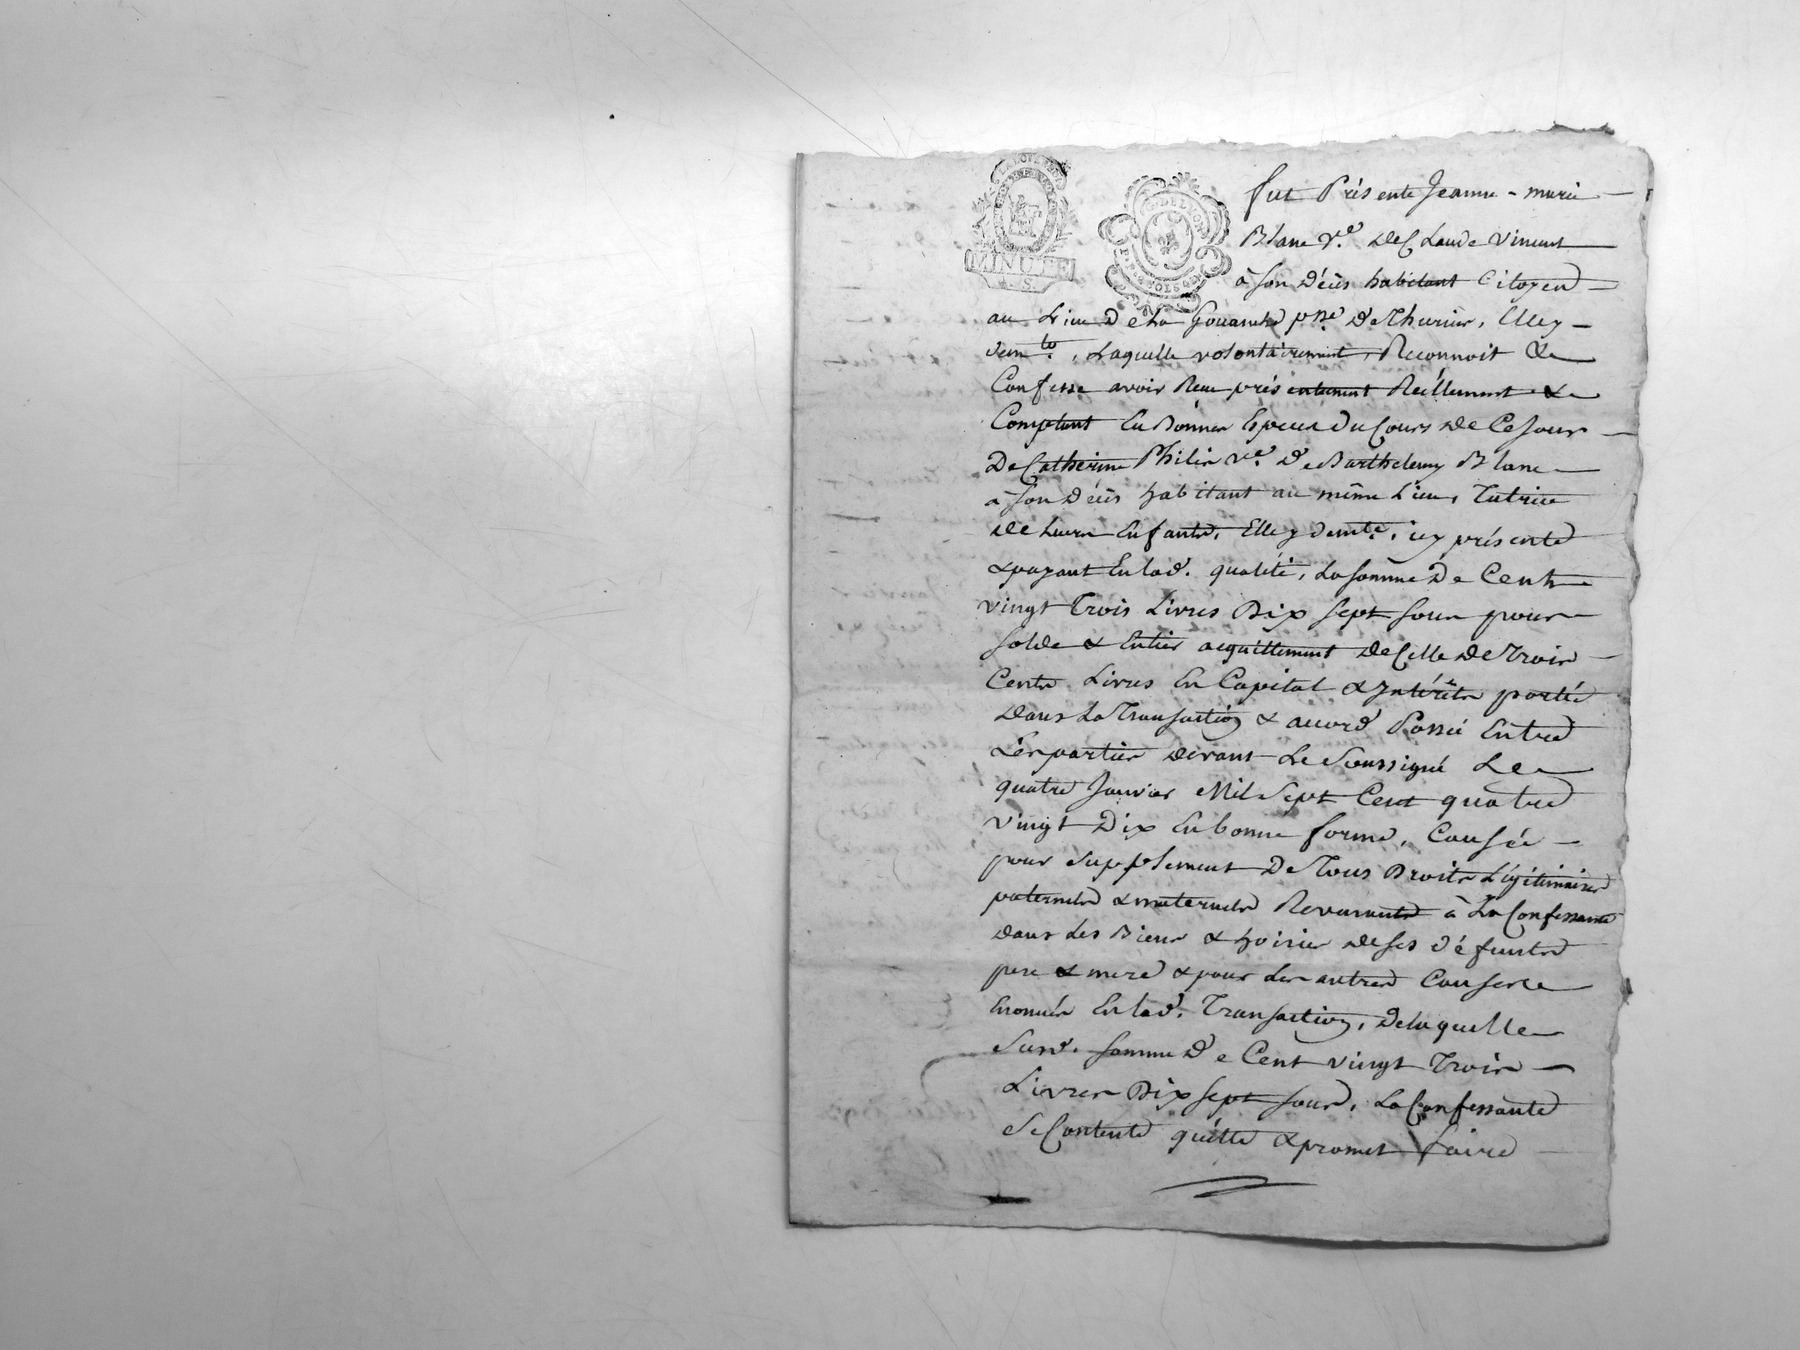 MINUTE
fut Présente Jeanne-marie
Blanc v.e De Claude vincent
à son Décès habitant Citoyen
au Lieu De La p.sse De Thurins, Elle y
dem.te, Laquelle volontairement, Reconnoit &
Confesse avoir Reçu présentement Réellement &
Comptant En Bonnes Especes Du Cours De Ce Jour
De Catherine Philis v.e De Barthelemy Blanc
à son Décès habitant au même Lieu, Tutrice
de Leurs Enfants, Elle y dem.te, icy présente
& payant En lad. qualité, La somme De Cent
vingt Trois Livres Dix sept sous pour
solde & Entier acquittement De Celle De Trois
Cents Livres En Capital & Intérêts portés
dans La Transaction & accord Passé Entre
Les parties devant Le Soussigné Le
quatre Janvier Mil Sept Cent quatre
vingt Dix En bonne forme, Causée
pour Supplement De Tous Droits Légitimaires
paternels & maternels Revenants à La Confessante
dans Les Biens & hoirie de ses défunts
pere & mere & pour Les autres Causes
Enoncées En lad. Transaction, De laquelle
Susd. somme De Cent vingt Trois
Livres Dix sept sous, La Confessante
Se Contente quitte & promet faire